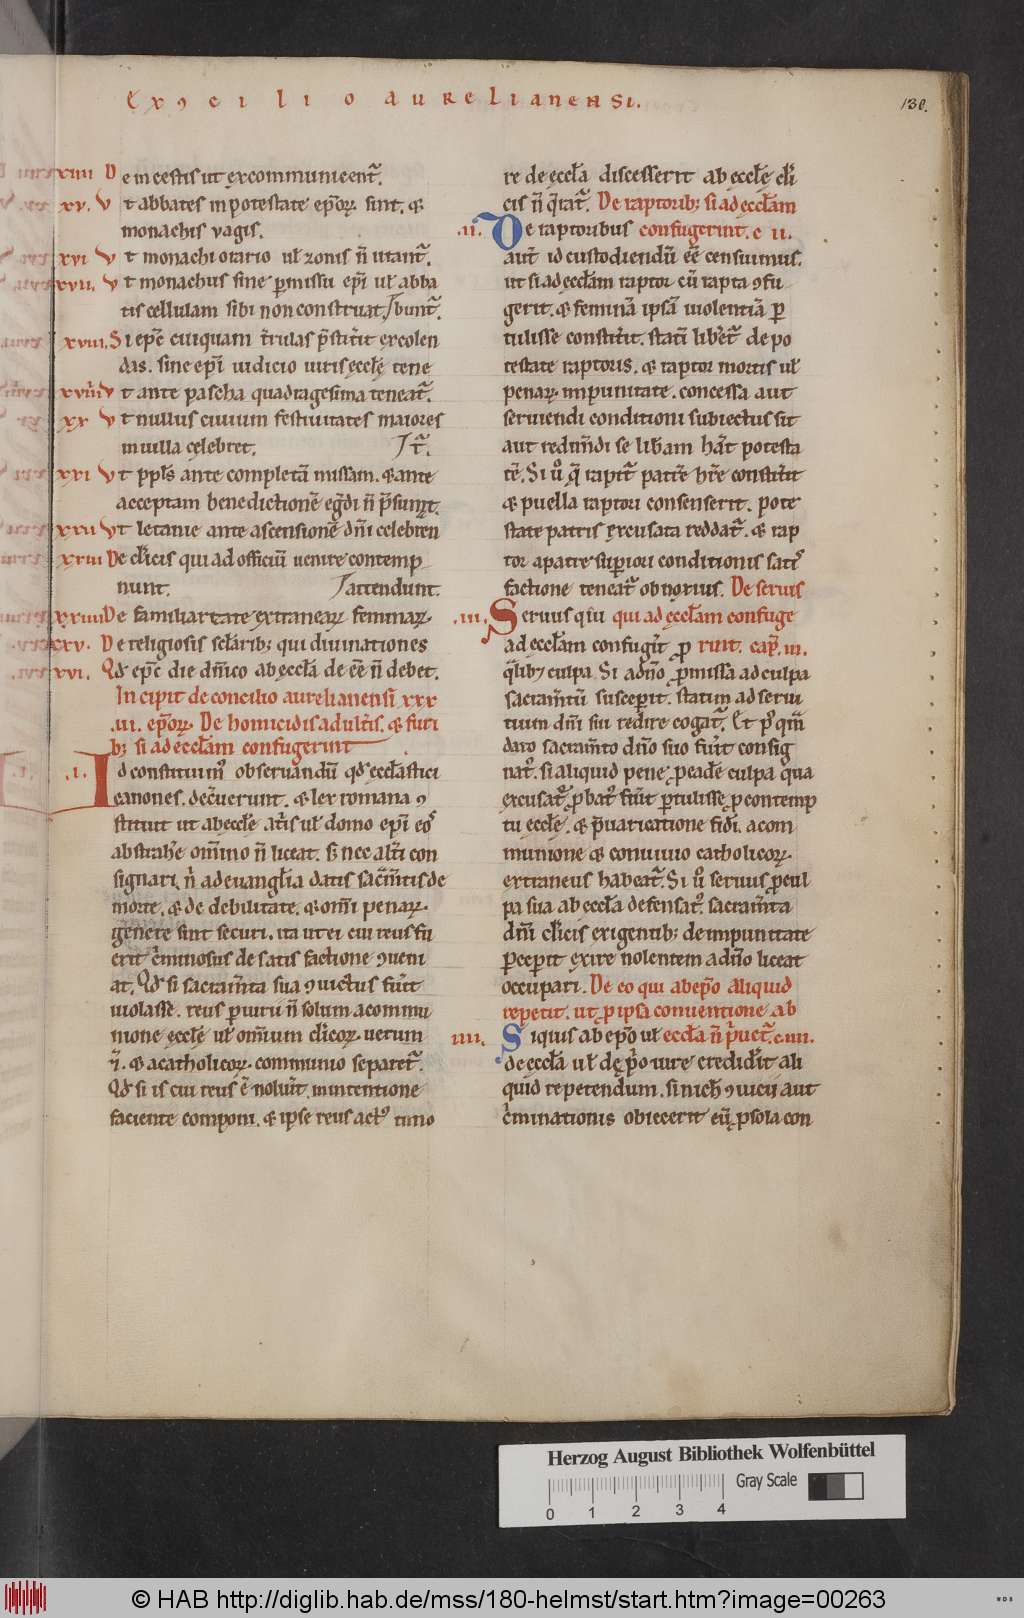 Ex ꝯcilio aurelianensi.
130.
xiiii De incestis ut excommunicent᷑.
xv. Vt abbates in potestate ep̄oꝝ sint. ⁊ de
monachis vagis.
xvi Vt monachi orario ul̓ zonis n̄ utant᷑.
xvii. Vt monachus sine ꝑmissu ep̄i ul̓ abba
tis cellulam sibi non construat. / bunt᷑.
xviii. Si ep̄c cuiquam t̓rulas p̄stit̓it excolen
das. sine ep̄i iudicio uiris ęccłę tene
xviiii Vt ante pascha quadragesima teneat᷑.
xx Vt nullus ciuium festiuitates maiores
in uilla celebret. / t᷑.
xxi Vt ppl̓s ante completā missam. ⁊ ante
acceptam benedictionē eg̓di n̄ p̄sumt.
xxii Vt letanie ante ascensionē dn̄i celebren
xxiii De cl̓icis qui ad officiū uenire contemp
nunt. / attendunt.
xxiiii De familiaritate extranearꝝ feminarꝝ.
xxv. De religiosis scłarib; qui diuinationes
xxvi. Qd̓ ep̄c die dn̄ico ab eccła deēe n̄ debet.
Incipit de concilio aurelianensi xxx
.iii. ep̄oꝝ. De homicidis adult̓is. ⁊ furi
b; si ad eccłam confugerint
.i. Id constituim᷒ obseruandū qd̓ eccłastici
canones. decreuerunt. ⁊ lex romana ꝯ
stituit ut ab eccłe atriis ul̓ domo ep̄i eos
abstrah̓e om̄ino n̄ liceat. s; nec alt̓i con
signari, n̓ ad euanglia datis sac̄m̄tis de
morte. ⁊ de debilitate. ⁊ om̄i penarꝝ
genere sint securi. ita ut ei cui reus fu
erit c̓minosus de satisfactione ꝯueni
at. Qd̓ si sacram̄ta sua ꝯuictus fu̓it
uiolasse. reus ꝑiurii n̄ solum a commu
nione eccłe ul̓ om̄ium cl̓icoꝝ. uerum
⁊ a catholicoꝝ communio separet᷑.
Qd̓ si is cui reus ē noluit. in intentione
faciente componi. ⁊ ipse reus act᷒ timo
re de ęccła discesserit ab eccłę cl̓i
cis n̄ q̓rat᷑. De raptorib; si ad ęccłam
.ii. De raptoribus confugerint. c ii.
aut̄ id custodiendū eē censuimus.
ut si ad ęccłam raptor cū rapta ꝯfu
gerit. ⁊ feminā ipsā uiolentiā ꝑ
tulisse constit̓it. statī lib̓et᷑ de po
testate raptoris. ⁊ raptor mortis ul̓
penarꝝ impunitate. concessa aut
seruiendi conditioni subiectus sit
aut redim̄di se lib̓am hāt potesta
tē. Si u̓o q̄ rapit᷑ patrē hr̄e constit̓it
⁊ puella raptori consenserit. pote
state patris excusata reddat᷑. ⁊ rap
tor a patre superiori conditionis satis
factione teneat᷑ obnoxius. De seruis
.iii. Seruus qui qui ad ęccłam confuge
ad ęccłam confug̓it ꝓ rint. cap̄. iii.
q̓lib; culpa. Si a dn̄o ꝓmissa ad culpa
sacram̄tū susceperit. statim ad serui
tium dn̄i sui redire cogat᷑. Et p᷒ qm̄
dato sacram̄to dn̄o suo fu̓it consig
nat᷒. si aliquid pene ꝓ eade culpa qua
excusat᷑ ꝓbat᷒ fu̓it ꝑtulisse ꝓ contemp
tu ęccłę. ⁊ p̄uaricatione fidei. a com
munione ⁊ conuiuio catholicoꝝ.
extraneus habeat᷑. Si u̓o seruus ꝓ cul
pa sua ab eccła defensat᷒. sacram̄ta
dn̄i cl̓icis exigentib; de impunitate
ꝑceperit exire nolentem a dn̄o liceat
occupari. De eo qui ab ep̄o aliquid
repetit. ut ꝓ ipsa conuentione ab
.iiii. Siquis ab ep̄o ul̓ eccła n̄ p̓uet᷑. c. iiii.
de eccła ul̓ de ꝓprio iure crediderit ali
quid repetendum. si nich̓ ꝯuicii aut
c̓minationis obiecerit eū ꝓ sola con
Herzog August Bibliothek Wolfenbüttel
Gray Scale
0 1 2 3 4
© HAB http://diglib.hab.de/mss/180-helmst/start.htm?image=00263